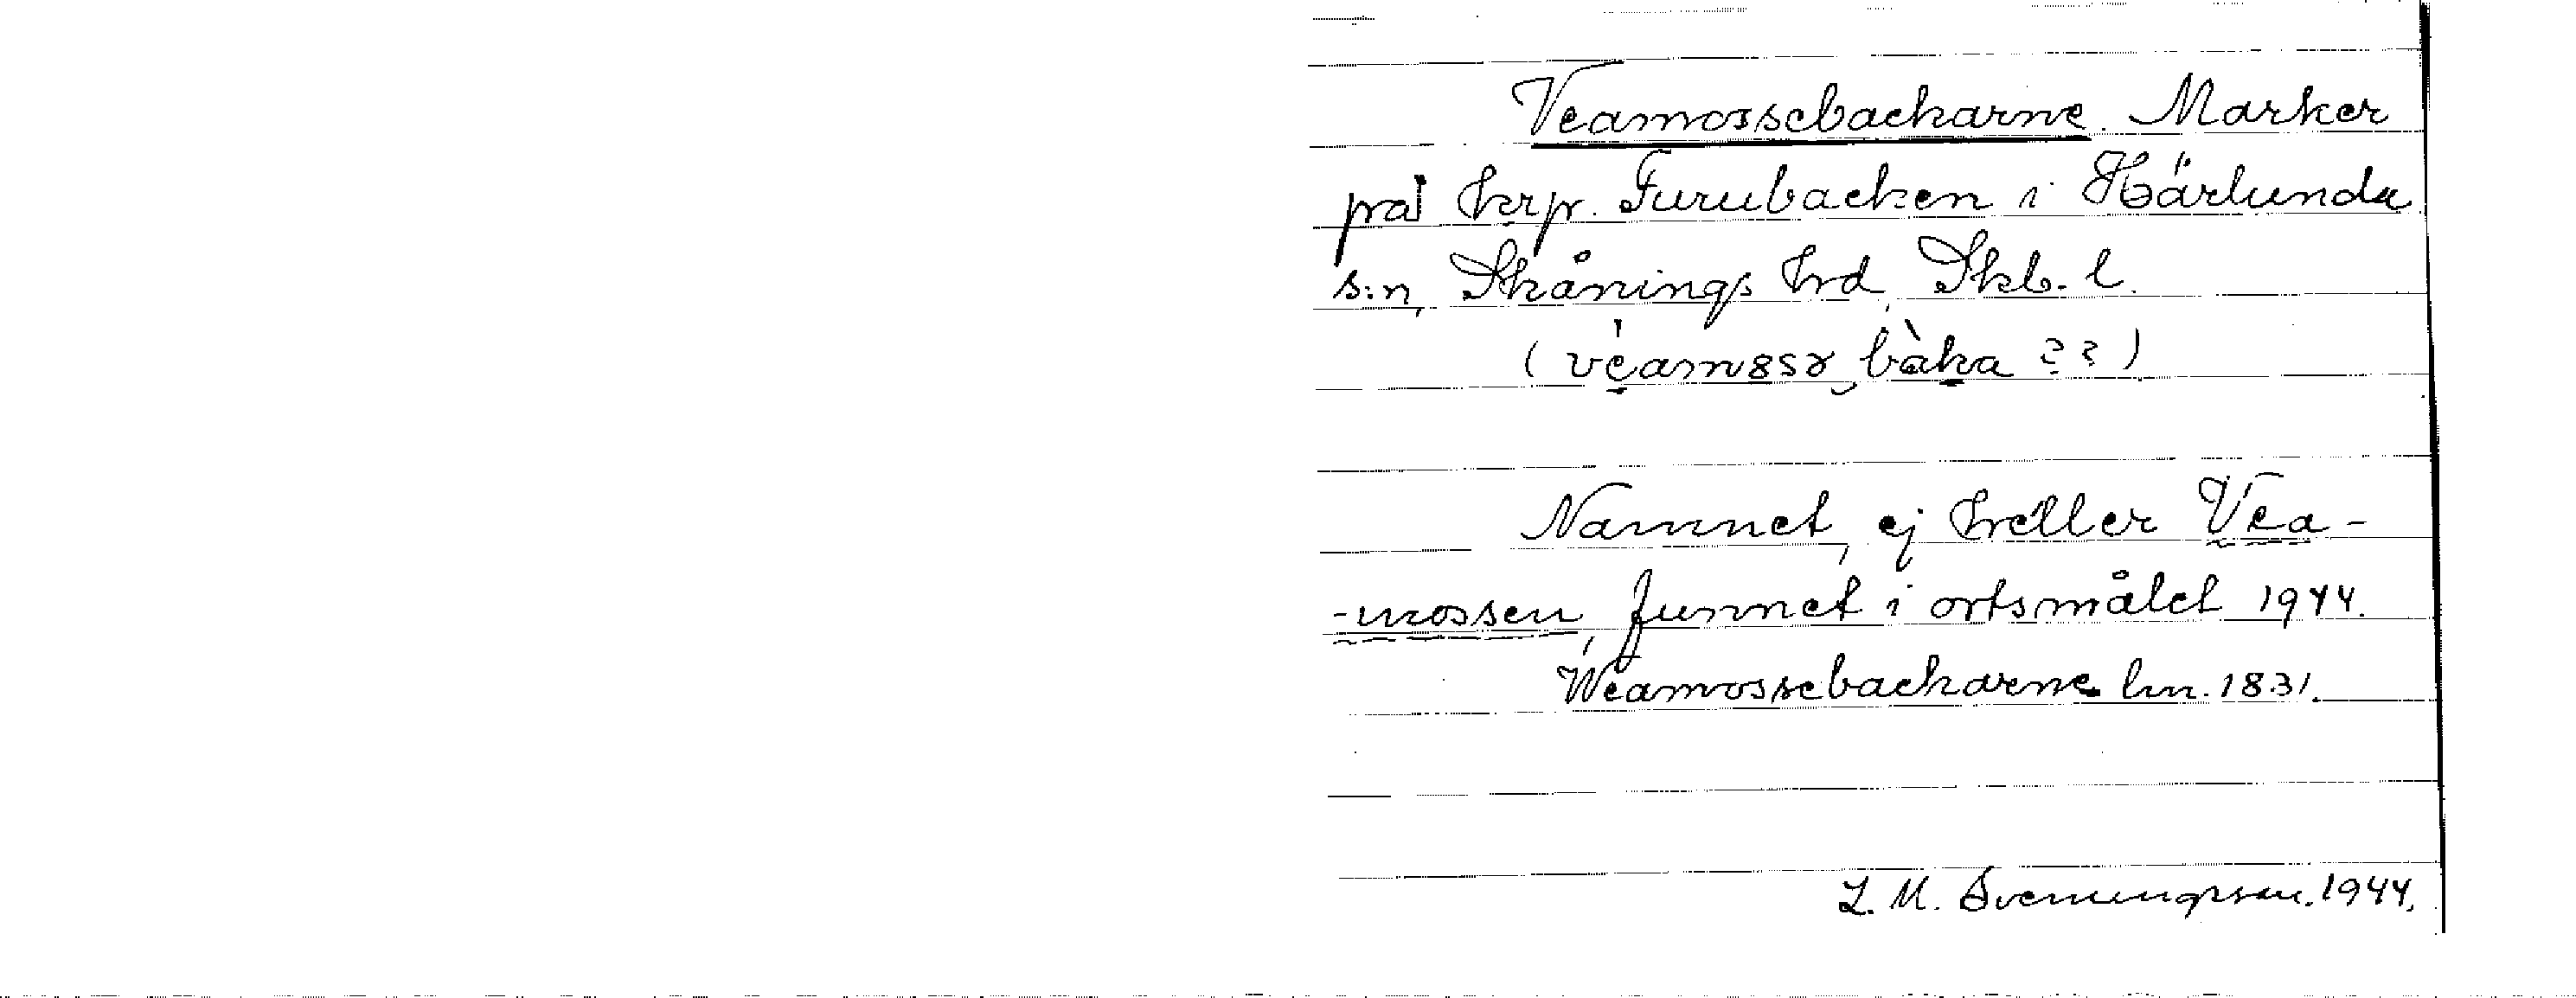 Veamossebackarne. Marker
på hrp. Furubacken i Härlunda
s:n, Skånings hd, Skb. l.
( bàka ?? )
Namnet, ej heller Vea-
-mossen, funnet i ortsmålet 1944.
Weamossebackarne lm. 1831.
L. M. Svenungsson. 1944.